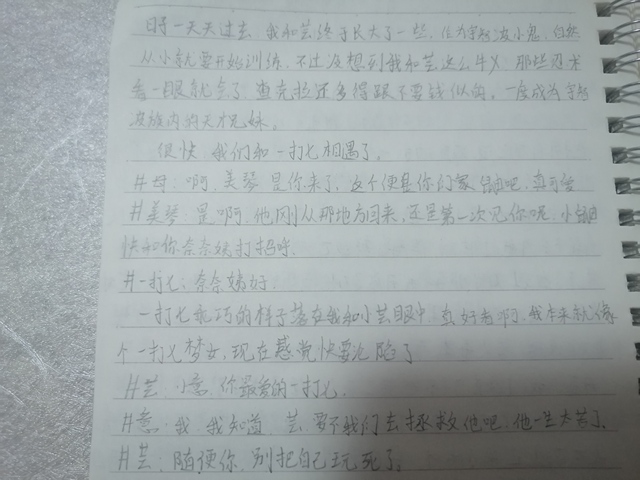 日子一天天过去,我和芸终于长大了一些,作为宇智波小鬼,自然
从小就要开始训练,不过没想到我和芸这么牛义,那些忍术
看一眼就会了,查克拉还多得跟不要钱似的。一度成为宇智
波族内的天才兄妹。
很快,我们和一打七相遇了。
#母:啊,美琴是你来了,这个便是你们家鼬吧,真可爱
#美琴:是啊,他刚从那地方回来,还是第一次见你呢,小鼬
快和你奈奈姨打招呼.
#一打七:奈奈姨好.
一打七乖巧的样子落在我和小芸眼中,真好看啊,我本来就像
个一打七梦女,现在感觉快要沦陷了
#芸:小意,你最爱的一打七.
#意:我,我知道,芸,要不我们去拯救他吧,他一生太苦了.
#芸:随便你,别把自己玩死了.